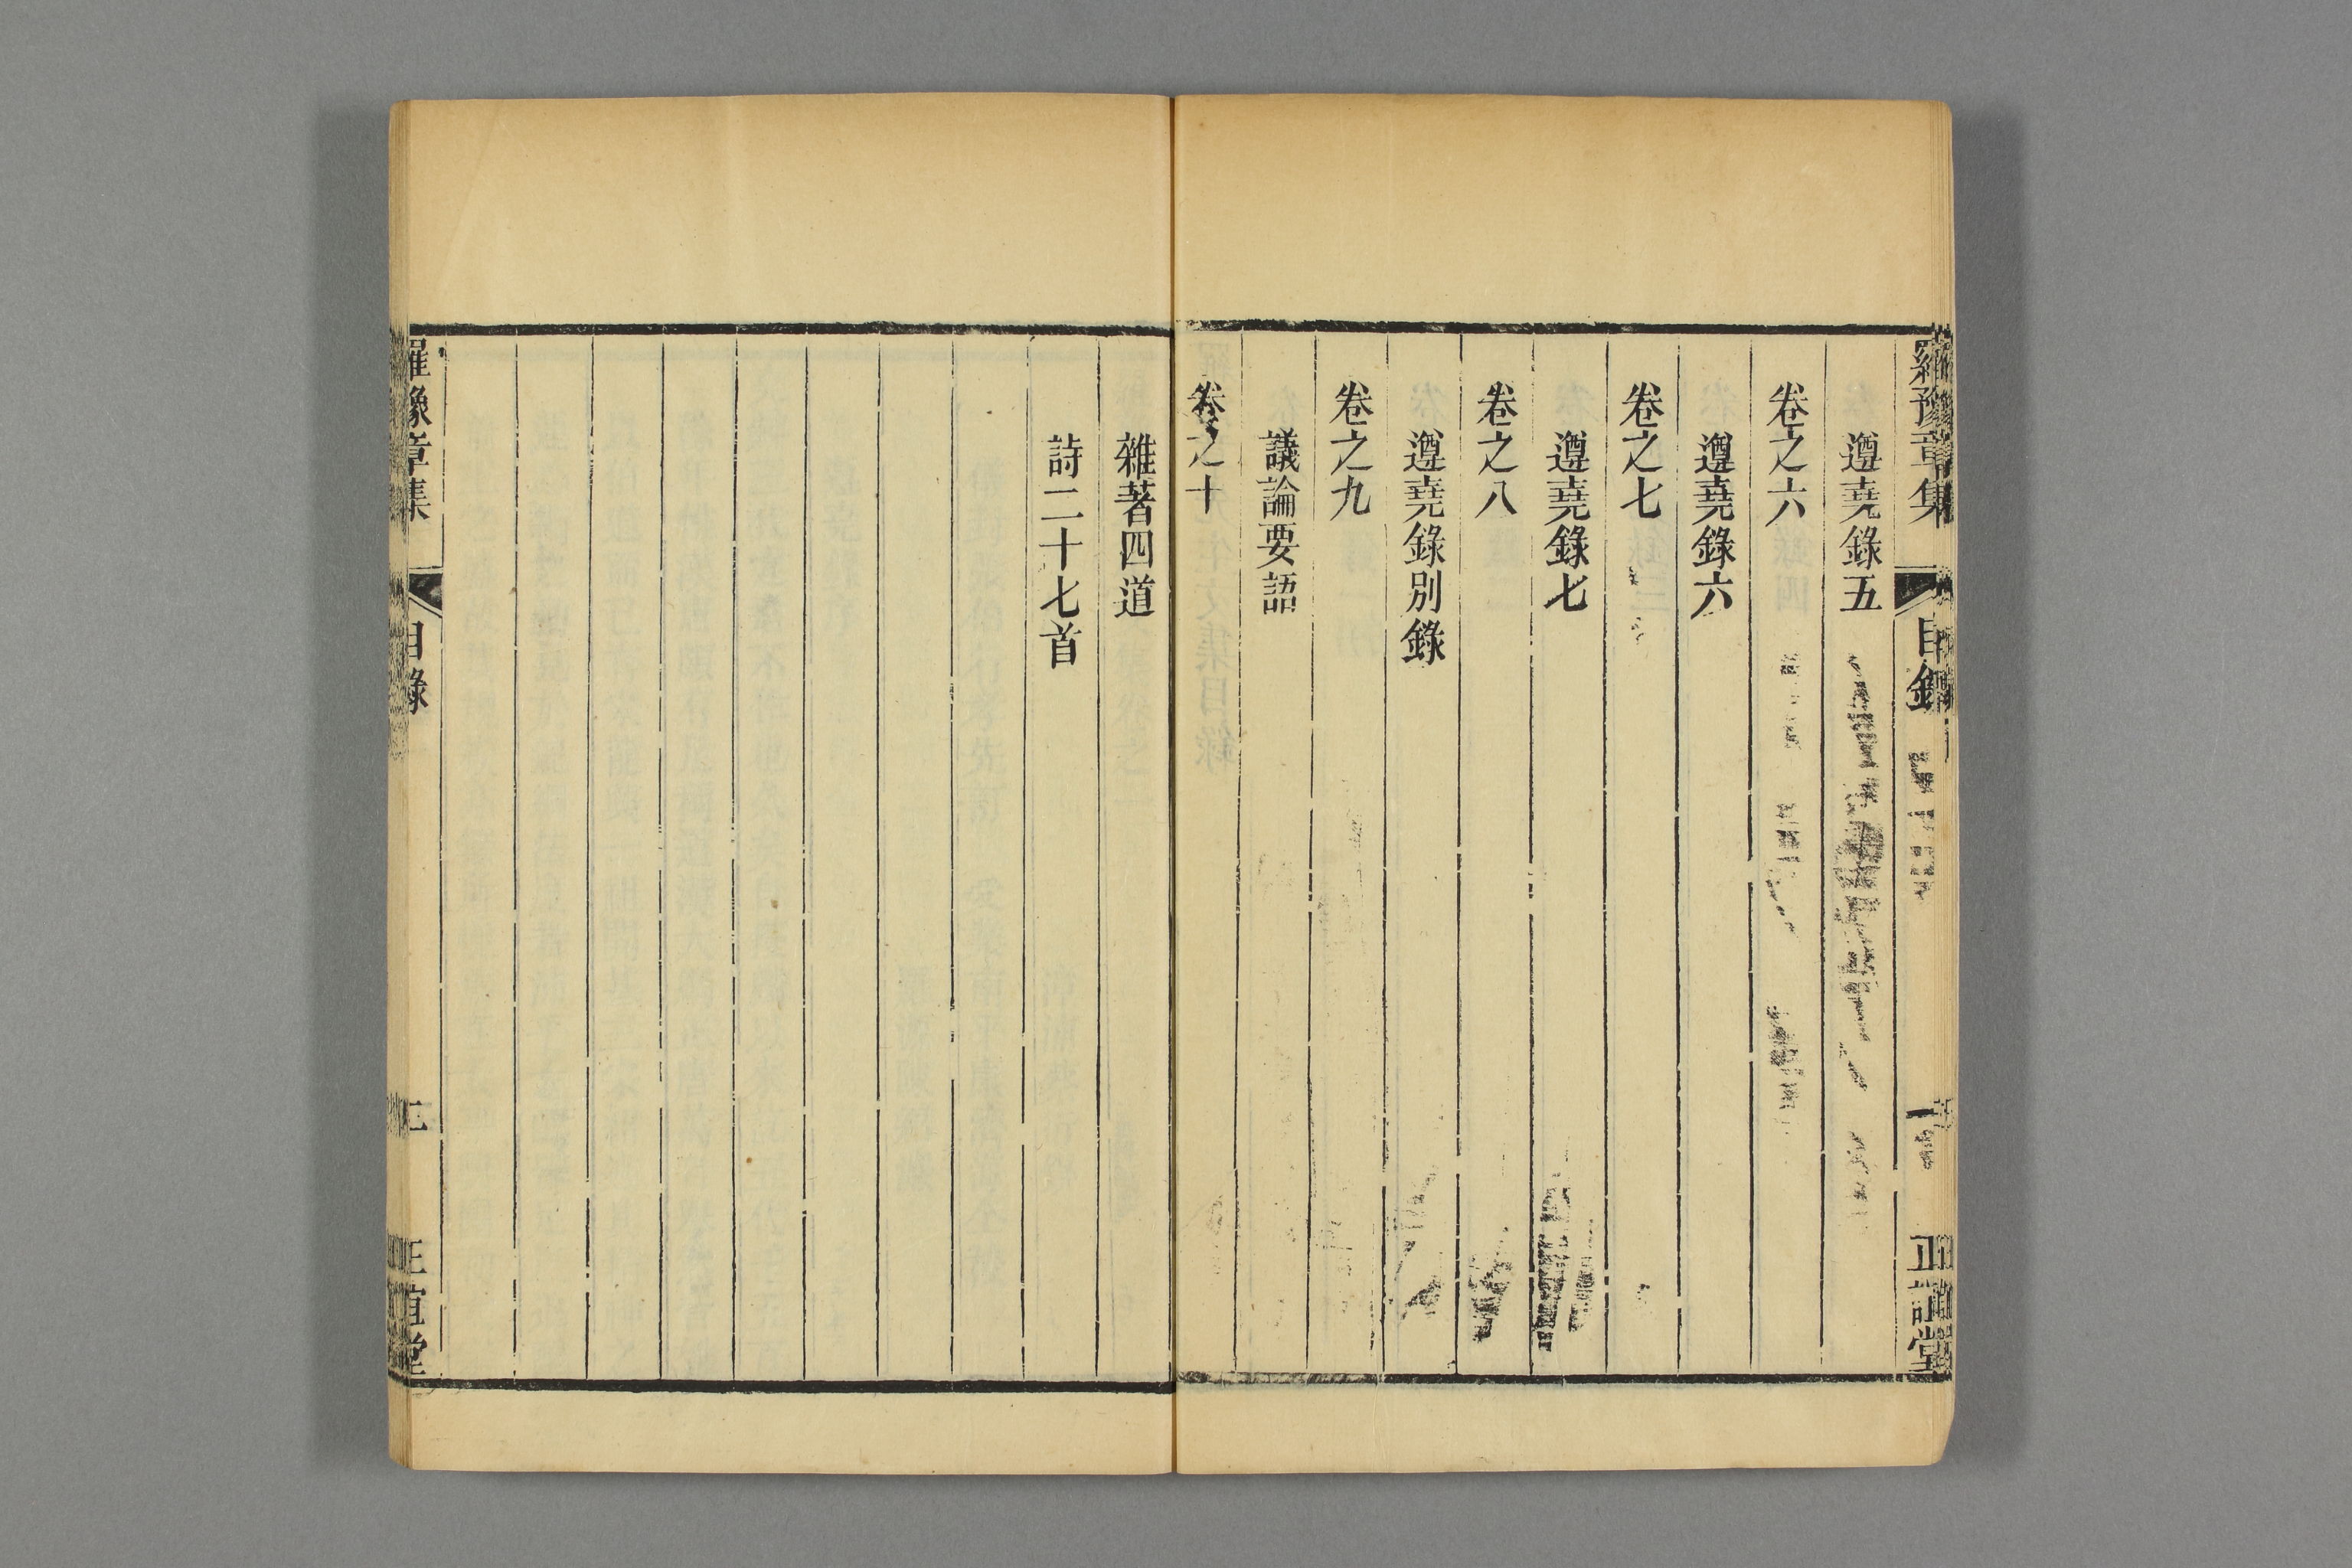 羅豫章集 目錄 一 正誼堂
遵堯錄五
卷之六
遵堯錄六
卷之七
遵堯錄七
卷之八
遵堯錄別錄
卷之九
議論要語
卷之十
雜著四道
詩二十七首
羅豫章集 目錄 二 正誼堂